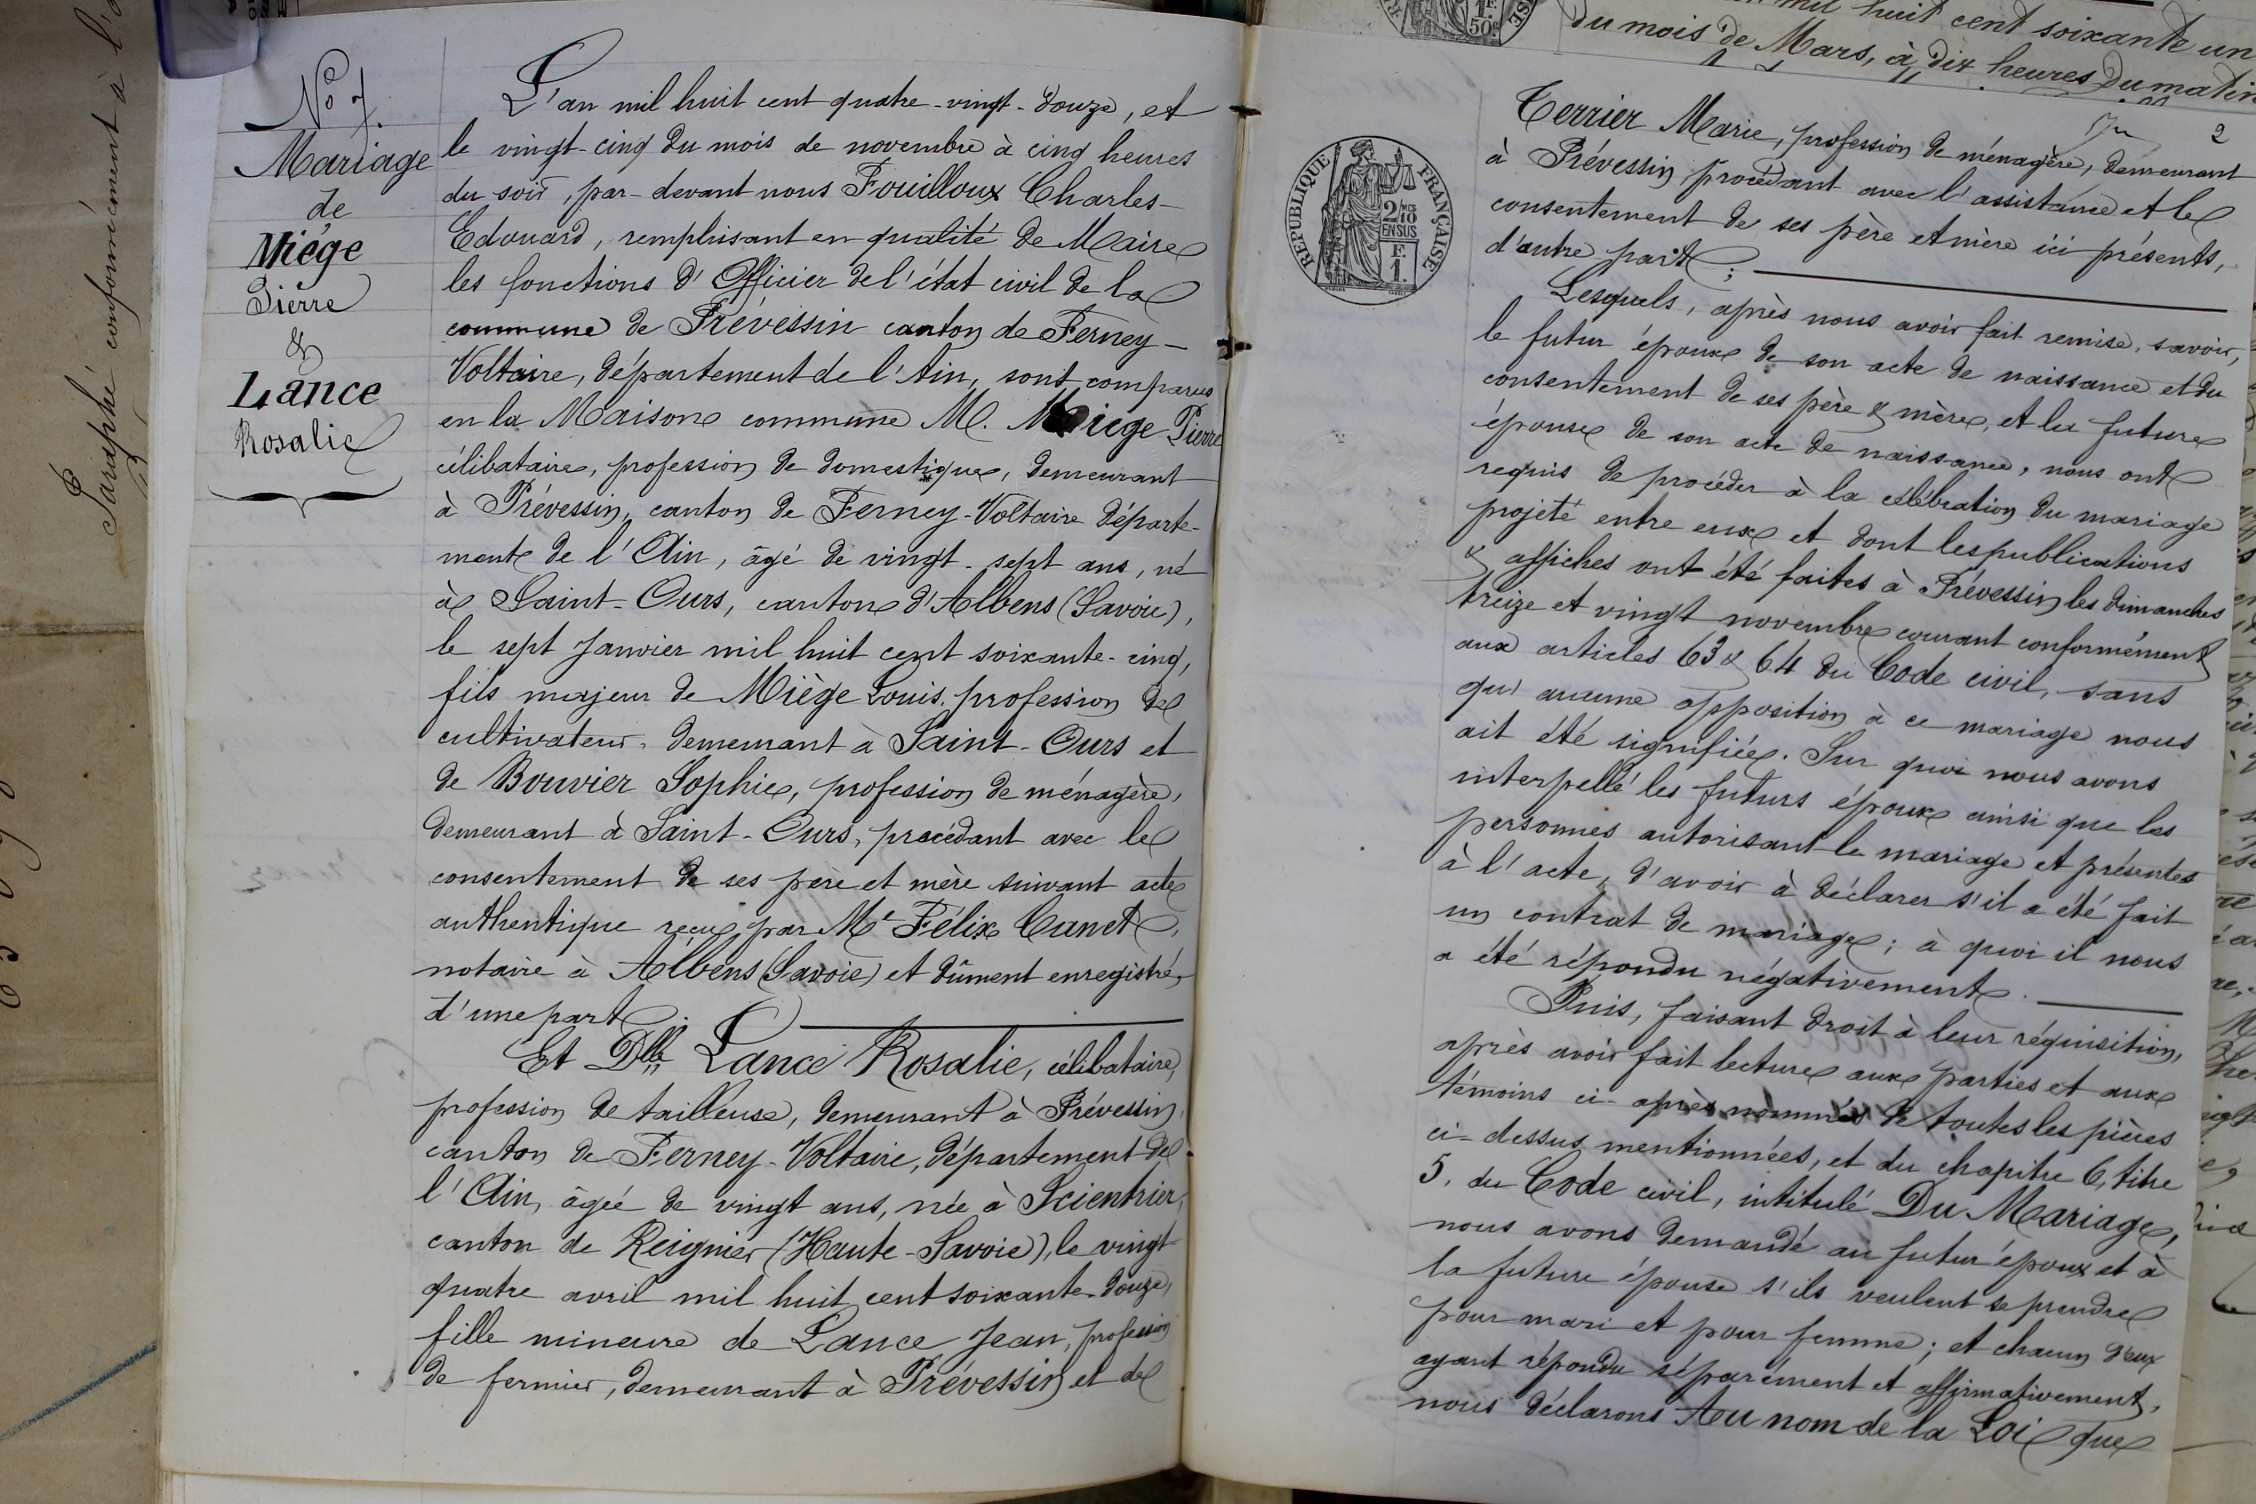 Paraphé conformément à l'a
No 7.
Mariage
de
Miège
Pierre
&
Lance
Rosalie
L'an mil huit cent quatre-vingt-douze, et
le vingt-cinq du mois de novembre à cinq heures
du soir, par-devant nous Fouilloux Charles-
Edouard, remplissant en qualité de Maire
les fonctions d'Officier de l'état civil de la
commune de Prévessin canton de Ferney-
Voltaire, département de l'Ain, sont comparus
en la Maison commune M. Miège Pierre
célibataire, profession de domestique, demeurant
à Prévessin, canton de Ferney-Voltaire départe-
ment de l'Ain, âgé de vingt-sept ans, né
à Saint-Ours, canton d'Albens (Savoie),
le sept Janvier mil huit cent soixante-cinq,
fils majeur de Miège Louis, profession de
cultivateur, demeurant à Saint-Ours et
de Bouvier Sophie, profession de ménagère,
demeurant à Saint-Ours, procédant avec le
consentement de ses père et mère suivant acte
authentique reçu par Me Félix Canet,
notaire à Albens (Savoie) et dûment enregistré,
d'une part.
Et Dlle Lance Rosalie, célibataire,
profession de tailleuse, demeurant à Prévessin,
canton de Ferney-Voltaire, département de
l'Ain, âgée de vingt ans, née à Scientrier,
canton de Reignier (Haute-Savoie), le vingt-
quatre avril mil huit cent soixante-douze,
fille mineure de Lance Jean, profession
de fermier, demeurant à Prévessin et de
mil huit cent soixante un
du mois de Mars, à dix heures du matin
2
RÉPUBLIQUE FRANÇAISE
2/10 MES
EN SUS
F.
1.
Terrier Marie, profession de ménagère, demeurant
à Prévessin procédant avec l'assistance et le
consentement de ses père et mère ici présents,
d'autre part;
Lesquels, après nous avoir fait remise, savoir,
le futur époux de son acte de naissance et du
consentement de ses père & mère, et la future
épouse de son acte de naissance, nous ont
requis de procéder à la célébration du mariage
projeté entre eux et dont les publications
& affiches ont été faites à Prévessin les dimanches
treize et vingt novembre courant conformément
aux articles 63 & 64 du Code civil, sans
qu'aucune opposition à ce mariage nous
ait été signifiée. Sur quoi nous avons
interpellé les futurs époux ainsi que les
personnes autorisant le mariage et présentes
à l'acte, d'avoir à déclarer s'il a été fait
un contrat de mariage; à quoi il nous
a été répondu négativement.
Puis, faisant droit à leur réquisition,
après avoir fait lecture aux parties et aux
témoins ci-après nommés de toutes les pièces
ci-dessus mentionnées, et du chapitre 6, titre
5, du Code civil, intitulé Du Mariage,
nous avons demandé au futur époux et à
la future épouse s'ils veulent se prendre
pour mari et pour femme; et chacun d'eux
ayant répondu séparément et affirmativement,
nous déclarons Au nom de la Loi que